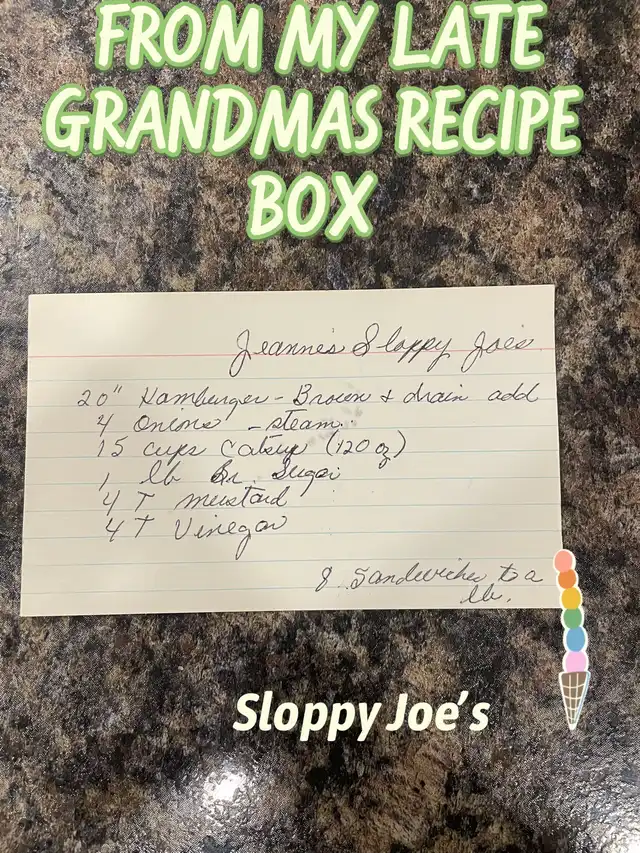 FROM MY LATE
GRANDMAS RECIPE
BOX
Jeannie's Sloppy Joe's
20" Hamburger - Brown & drain add
4 Onions - steam
15 cups Catsup (120 oz)
1 lb Br. Sugar
4 T mustard
4 T Vinegar
8 Sandwiches to a
lb.
Sloppy Joe's